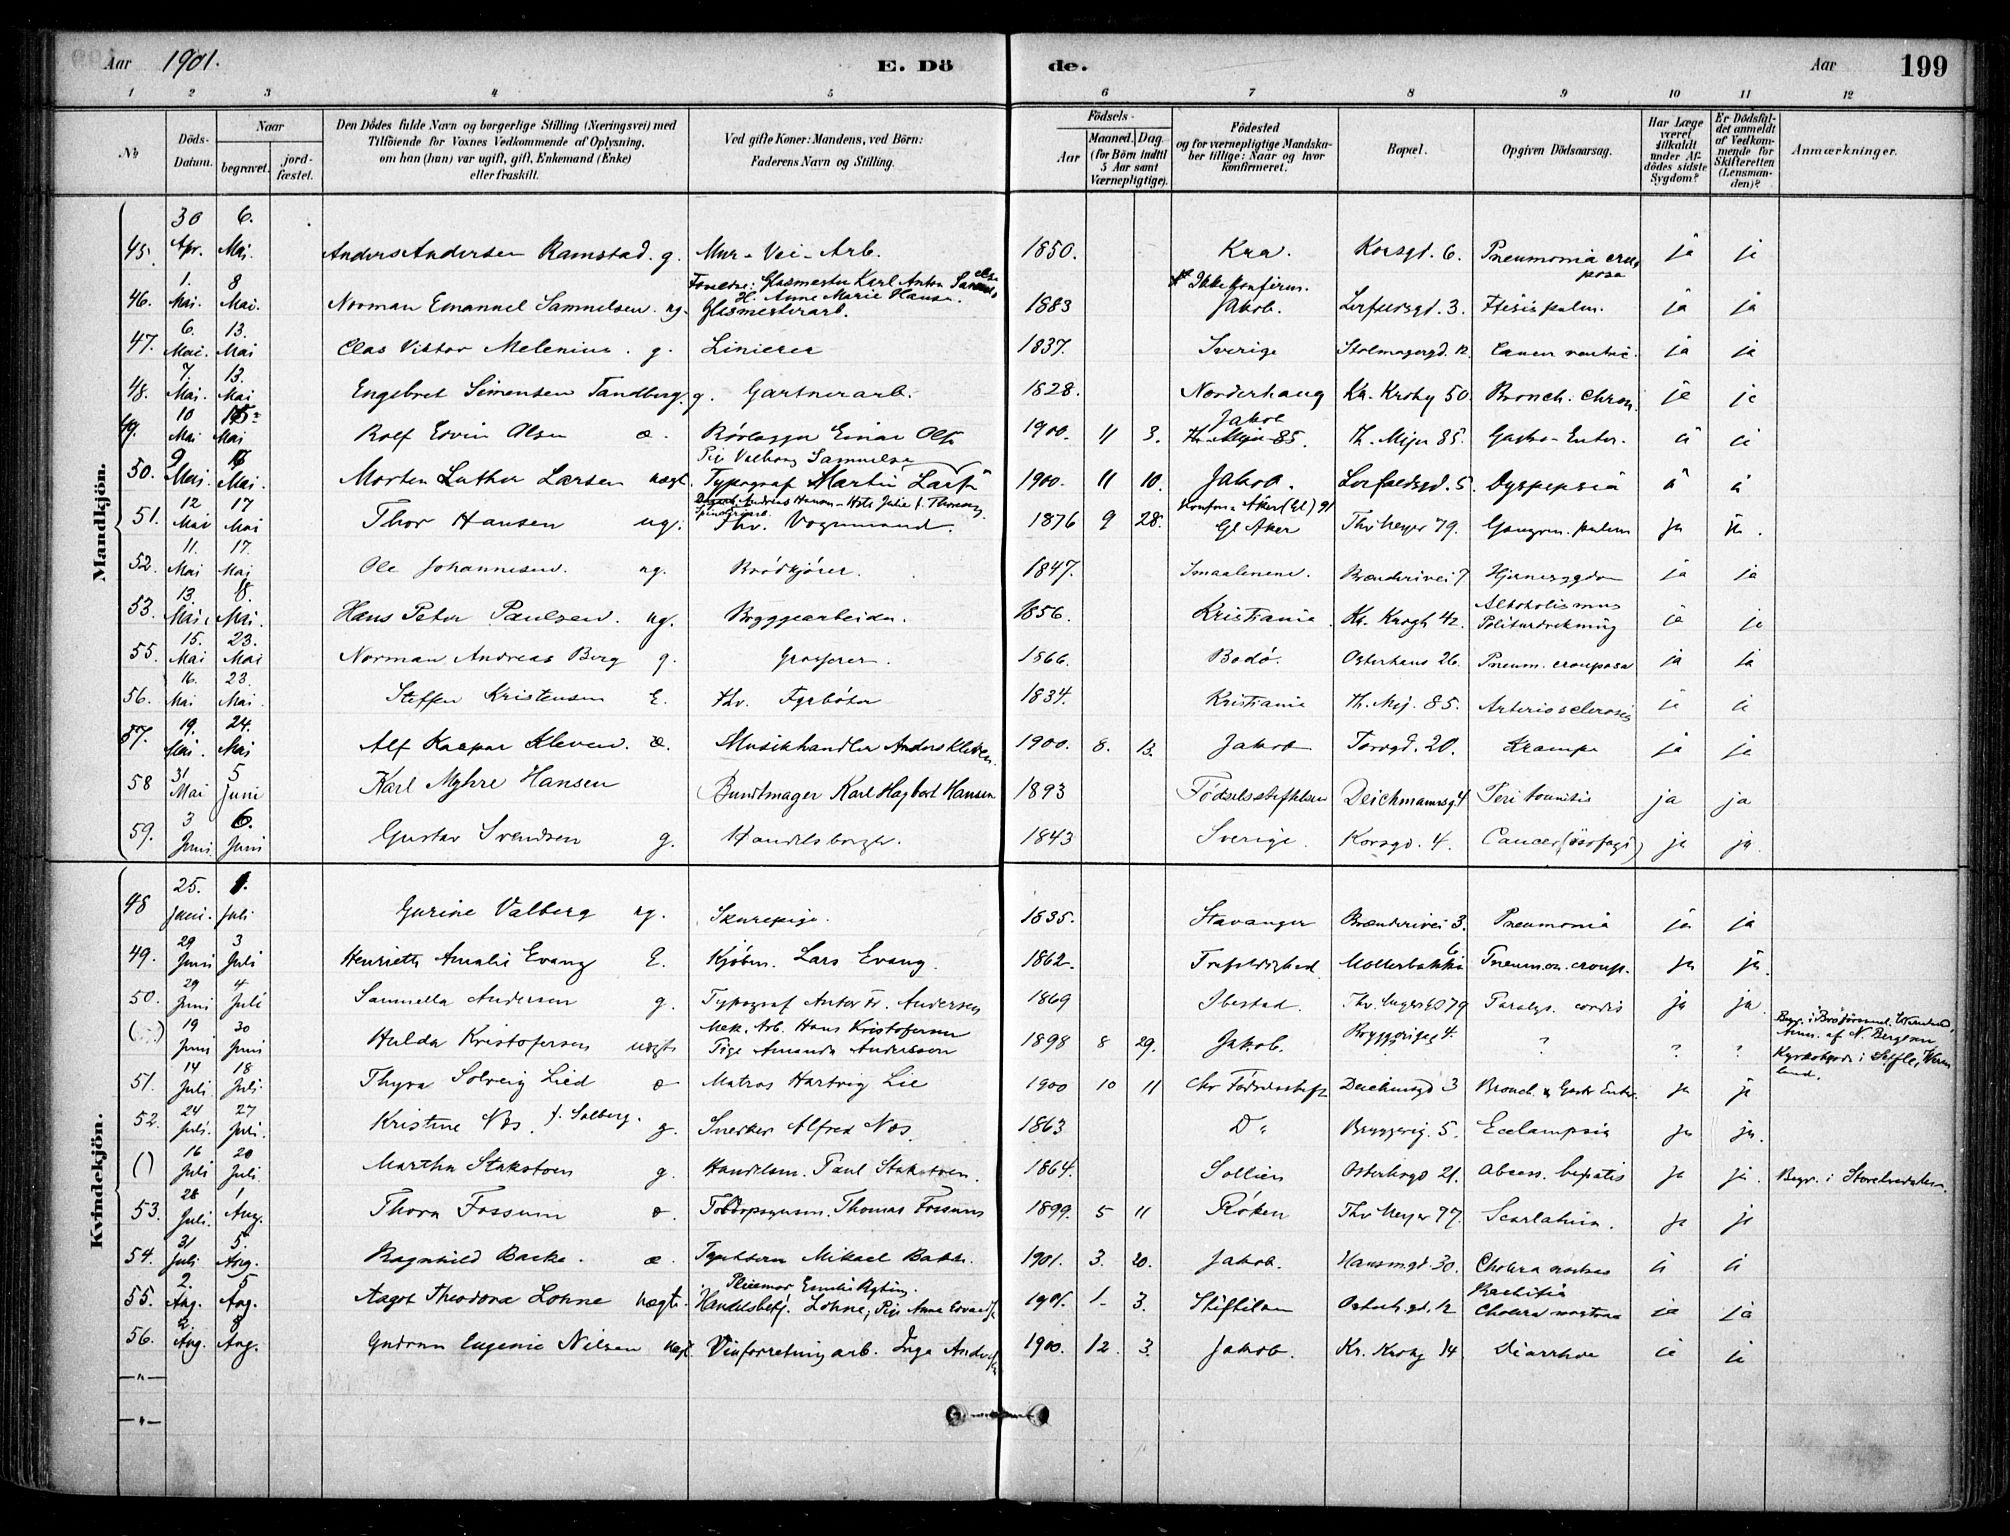 Aar 1901. E. Döde. Aar 199
1 2 3 4 5 6 7 8 9 10 11 12
No Döds-Datum. Naar begravet. jordfæstet. Den Dödes fulde Navn og borgerlige Stilling (Næringsvei) med Tilföiende for Voxnes Vedkommende af Oplysning, om han (hun) var ugift, gift, Enkemand (Enke) eller fraskilt. Ved gifte Koner: Mandens, ved Börn: Faderens Navn og Stilling. Födsels- Aar Maaned. Dag. (for Börn indtil 5 Aar samt Værnepligtige). Födested og for værnepligtige Mandskaber tillige: Naar og hvor konfirmeret. Bopæl. Opgiven Dödsaarsag. Har Læge været tilkaldt under Afdödes sidste Sygdom? Er Dödsfaldet anmeldt af Vedkommende for Skifteretten (Lensmanden)? Anmærkninger.
Mandkjön.
45. 30 Apr. 6. Mai. Anders Andersen Ramstad. g. Mur- Vei- Arb. 1850. Kra. Korsgt. 6. Pneumonia crouposa ja ja
46. 1. Mai. 8 Mai. Norman Emanuel Samuelsen. ug. Forældre: Glasmester Karl Anton Samuelsen H. Anne Marie Hansen. Glasmesterarb. 1883 Ikke konfirm. Jakob. 3. Ftisis pulm. ja ja
47. 6. Mai. 13. Mai Clas Viktor Melenius. g. Linierer 1837. Sverige Stolmagergd. 12. Cancer ventric. ja ja
48. 7. Mai. 13. Mai Engebret Simensen Tandberg. g. Gartnerarb. 1828. Norderhaug Kr. Krohg 50. Bronch. chron. ja ja
49. 10 Mai 15 Mai Rolf Edvin Olsen æ. Rörlægger Einar Olsen 1900. 11 3. Jakob Th. Meyer 85. Gastro-Enter. ja ja
50. 9 Mai. 16 Mai. Morten Luther Larsen uægt. Pige Valborg Samuelsen Typograf Martin Larsen 1900. 11 10. Jakob. 5. Dyspepsia ja ja
51. 12 Mai 17 Mai Thor Hansen ug. Andreas Hansen Julie f. Thoresen fhv. Vognmand. 1876 9 28. Konfirm. Aker (Gl) 91 Gl Aker Thv Meyer 79. Gangræn. pulm ja ja.
52. 11. Mai 17. Mai Ole Johannesen. ug. Brödkjörer. 1847. Smaalenene. Brænderivei 7 Hjernesygdom ja ja
53. 13. Mai. 18. Mai. Hans Peter Paulsen. ug. Byggearbeider. 1856. Kristiania. Kr. Krogh 42. Alkoholismus Politurdrikning ja ja
55. 15. Mai 23. Mai Norman Andreas Berg g. Grosserer. 1866. Bodö. Osterhaus 26. Pneum. crouposa ja ja
56. 16. Mai 23. Mai. Steffen Kristensen E. fhv. Fyrböter 1834. Kristiania Th. Mej. 85. Arteriosclerosis ja ja
57. 19. Mai. 24. Mai Alf Kaspar Kleven. æ. Musikhandler Anders Kleven. 1900. 8. 13. Jakob Torvgd. 20. Krampe ja ja
58 31 Mai 5 Juni Karl Myhre Hansen Buntmager Karl Hagbart Hansen 1893 Födselsstiftelsen Deichmannsg 4 Peritonitis ja ja
59. 3 Juni 6. Juni Gustav Svendsen g. Handelsborger. 1843 Sverige. Korsgd. 4. Cancer (øsofagi) ja ja.
Kvindekjön.
48 25. Juni. 1. Juli Gurine Valberg ug. Skurepige. 1835. Stavanger Brænderivei 3. Pneumonia ja ja
49. 29 Juni 3 Juli Henriette Amalie Evang E. Kjöbm. Lars Evang. 1862. Trefoldighed Möllerbakken 6 Pneumon. croup. ja ja
50. 29 Juni 4 Juli Samuella Andersen g. Typograf Anton Fr. Andersen 1869 Ibestad. Thv. Meyers G 79 Paralys. cordis ja ja.
19 Juni 30 Juni Hulda Kristofersen uægte Mek. Arb. Hans Kristofersen Pige Amanda Anderssen 1898 8 29. Jakob. Bryggerigaa 4. ? ? ? Begr. i af N. Bergsen Kyrkobgrd i Seffle, Wermland.
51. 14 Juli 18 Juli. Thyra Solveig Lied æ Matros Hartvig Lie 1900 10 11 Chr Födselsstift Deichmsgd 3 Bronch. & Gastr Enter. ja ja
52. 24 Juli. 27 Juli. Kristine Næs. f. Solberg. g. Snedker Alfred Næs. 1863 Do. Bryggerig. 5. Eclampsia ja ja.
() 16 Juli 20 Juli Martha Stakstoen g. Handelsm. Paul Stakstoen. 1864. Sollien Osterhsgd 21. Abcess. hepatis ja ja. Begr. i Storelvedalen.
53. 28 Juli. 1 Aug. Thora Fossum æ. Thomas Fossum 1899. 5 11 Röken Thv Meyer 77. Scarlatina. ja ja
54. 31 Juli 5. Aug. Ragnhild Bakke. æ. Mikael Bakke. 1901. 3. 20. Jakob. Hausmgd. 30. Cholera nostras ja ja
55. 2. Aug. 5 Aug. Aagot Theodora Lohne uægte. Pleiemor Emilie Handelsbetj. Lohne, Pige Anna 1901. 1. 3. Stiftelsen Osterh. gd. 12 Rachitis Cholera nostras ja ja
56. 2. Aug. 8 Aug. Gudrun Eugenie Nilsen uægt Vinforretning arb. Inga Andersen 1900. 12. 3. Jakob. Kr. Krohg 14. Diarrhoe ja ja
—"—
—"—